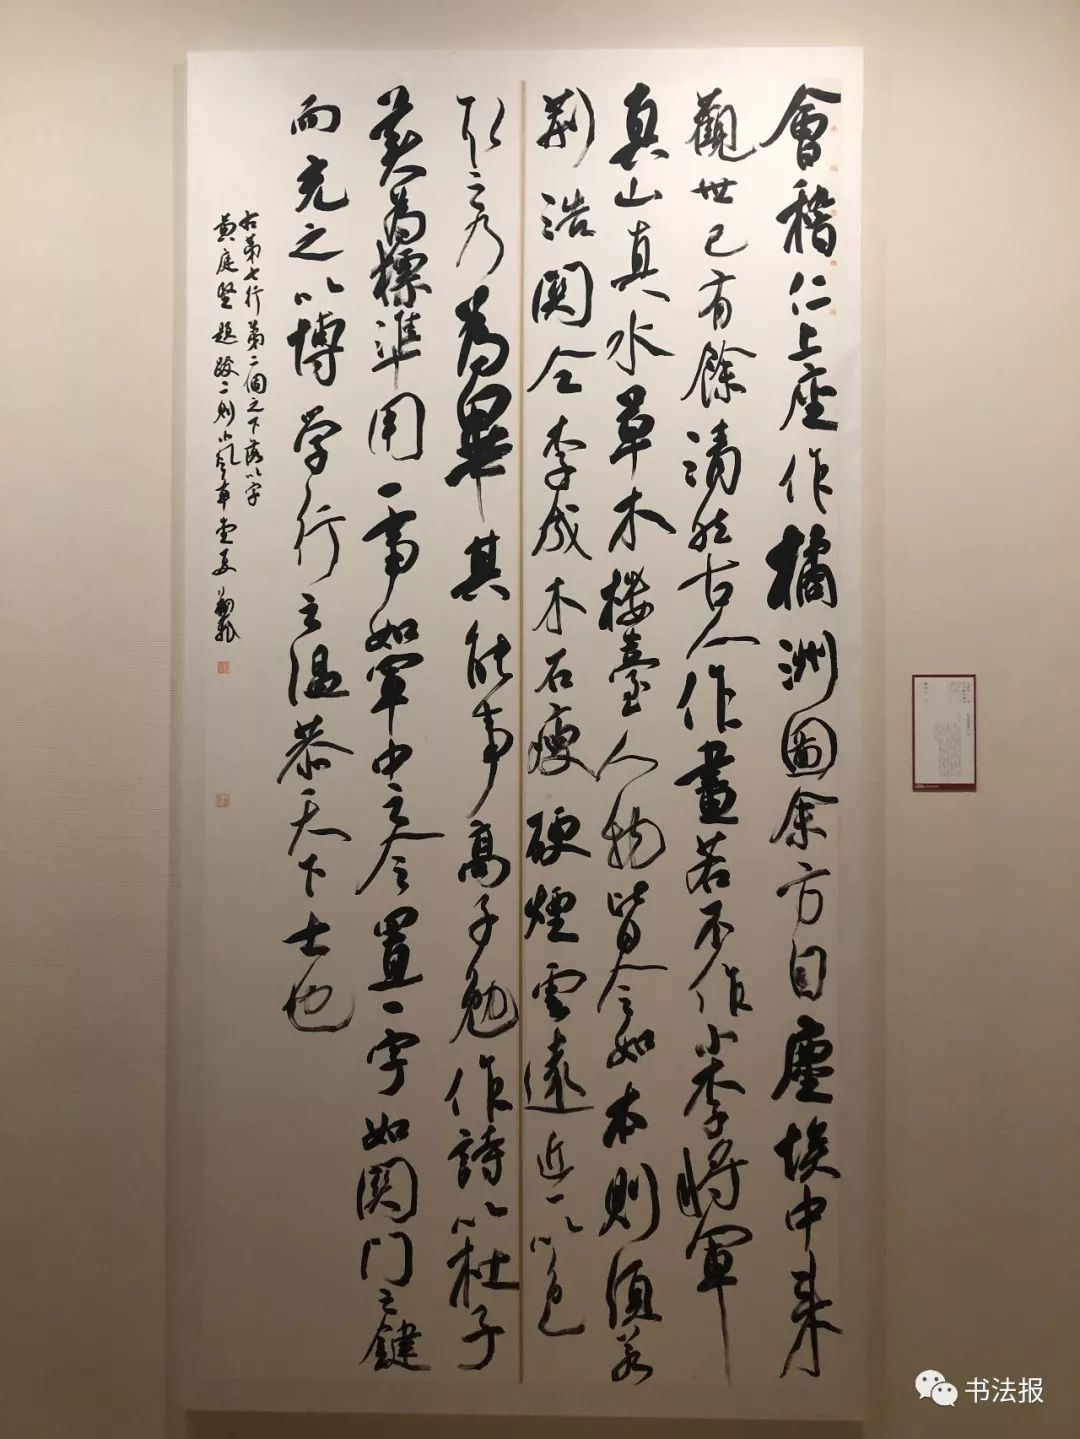 會稽仁上座作橘洲圖余方自塵埃中来
觀世已有餘清然古人作畫若不作小李將軍
真山真水草木樓臺人物皆令如本則須若
荆浩関仝李成木石瘦硬煙雲遠近一以色
取之乃為畢其能事高子勉作詩以杜子
美為標準用一事如軍中之令置一字如関门之鍵
而充之以博学行之温恭天下士也
右第七行第二個之下落以字
黄庭堅題跋二則
书法报